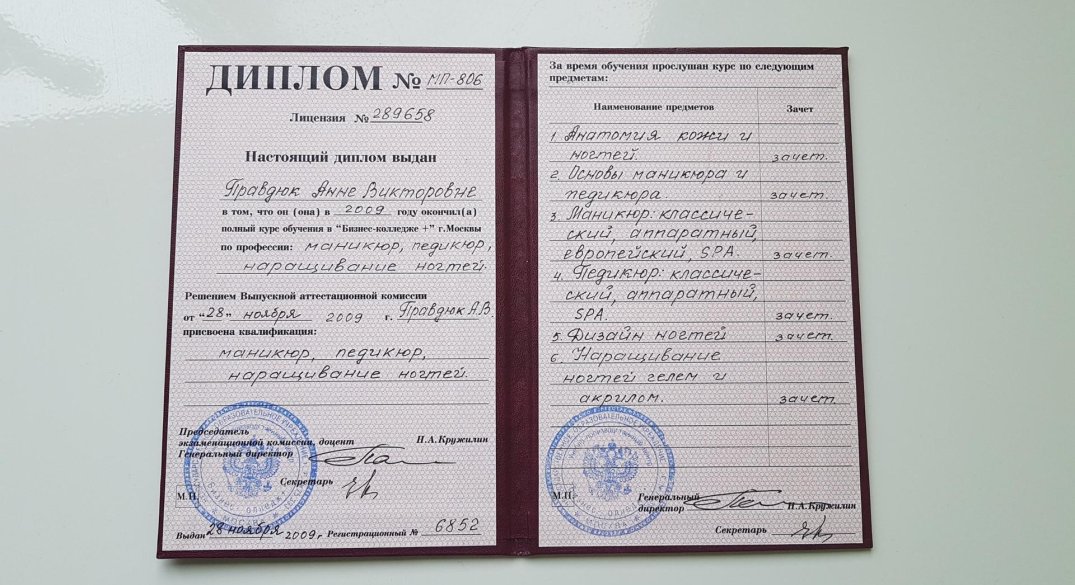 ДИПЛОМ № МП-806
Лицензия № 289658
Настоящий диплом выдан
Правдюк Анне Викторовне
в том, что он (она) в 2009 году окончил(а)
полный курс обучения в "Бизнес-колледже +" г.Москвы
по профессии: маникюр, педикюр,
наращивание ногтей.
Решением Выпускной аттестационной комиссии
от "28" ноября 2009 г. Правдюк А.В.
присвоена квалификация:
маникюр, педикюр,
наращивание ногтей.
Председатель
экзаменационной комиссии, доцент Н.А.Кружилин
Генеральный директор
Секретарь
М.П.
Выдан 28 ноября 2009 г Регистрационный № 6852
За время обучения прослушан курс по следующим
предметам:
Наименование предметов Зачет
1. Анатомия кожи и
ногтей. зачет.
2. Основы маникюра и
педикюра. зачет.
3. Маникюр: классиче-
ский, аппаратный,
европейский, SPA. зачет.
4. Педикюр: классиче-
ский, аппаратный,
SPA. зачет.
5. Дизайн ногтей зачет.
6. Наращивание
ногтей гелем и
акрилом. зачет.
М.П. Генеральный
директор Н.А.Кружилин
Секретарь